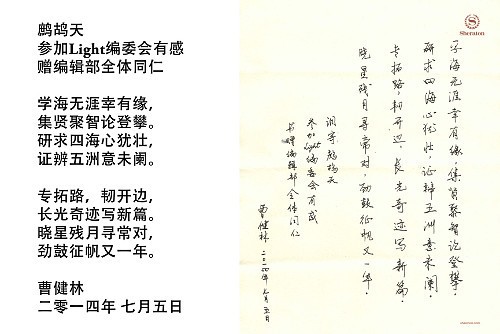 鹧鸪天
参加Light编委会有感
赠编辑部全体同仁
学海无涯幸有缘，
集贤聚智论登攀。
研求四海心犹壮，
证辨五洲意未阑。
专拓路，韧开边，
长光奇迹写新篇。
晓星残月寻常对，
劲鼓征帆又一年。
曹健林
二零一四年 七月五日
Sheraton
学海无涯幸有缘，集贤聚智论登攀。
研求四海心犹壮，证辩五洲意未阑。
专拓路，韧开边，长光奇迹写新篇。
晓星残月寻常对，劲鼓征帆又一年。
调寄鹧鸪天
参加Light编委会有感
书赠编辑部全体同仁
曹健林
二〇一四年 七月五日